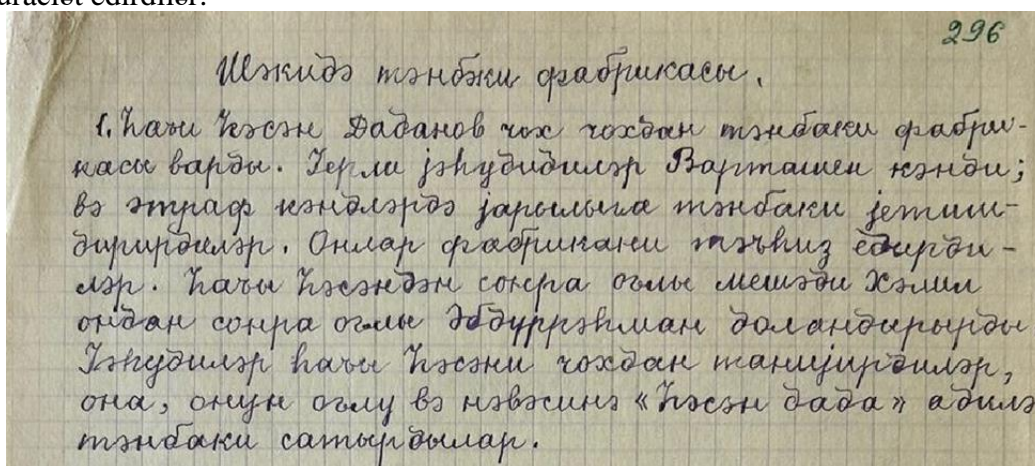 müraciət edirdilər.
296
Шәкидә тәнбәки фабрикасы.
1. Һаҹи Һәсән Даданов чох чохдан тәнбаки фабри-
касы варды. Јерли јәһудидиләр Варташен кәнди;
вә әтраф кәндләрдә јарылыга тәнбаки јетиш-
дирирдиләр. Онлар фабрикани тәҹһиз едирди-
ләр. Һаҹы Һәсәндән сонра оғлы мешәди Хәлил
ондан сонра оғлы Әбдүррәһман доландырырды
Јәһудиләр һаҹы Һәсәни чохдан танијирдиләр,
она, онун оғлу вә нәвәсинә «Һәсән дада» адилә
тәнбаки сатырдылар.